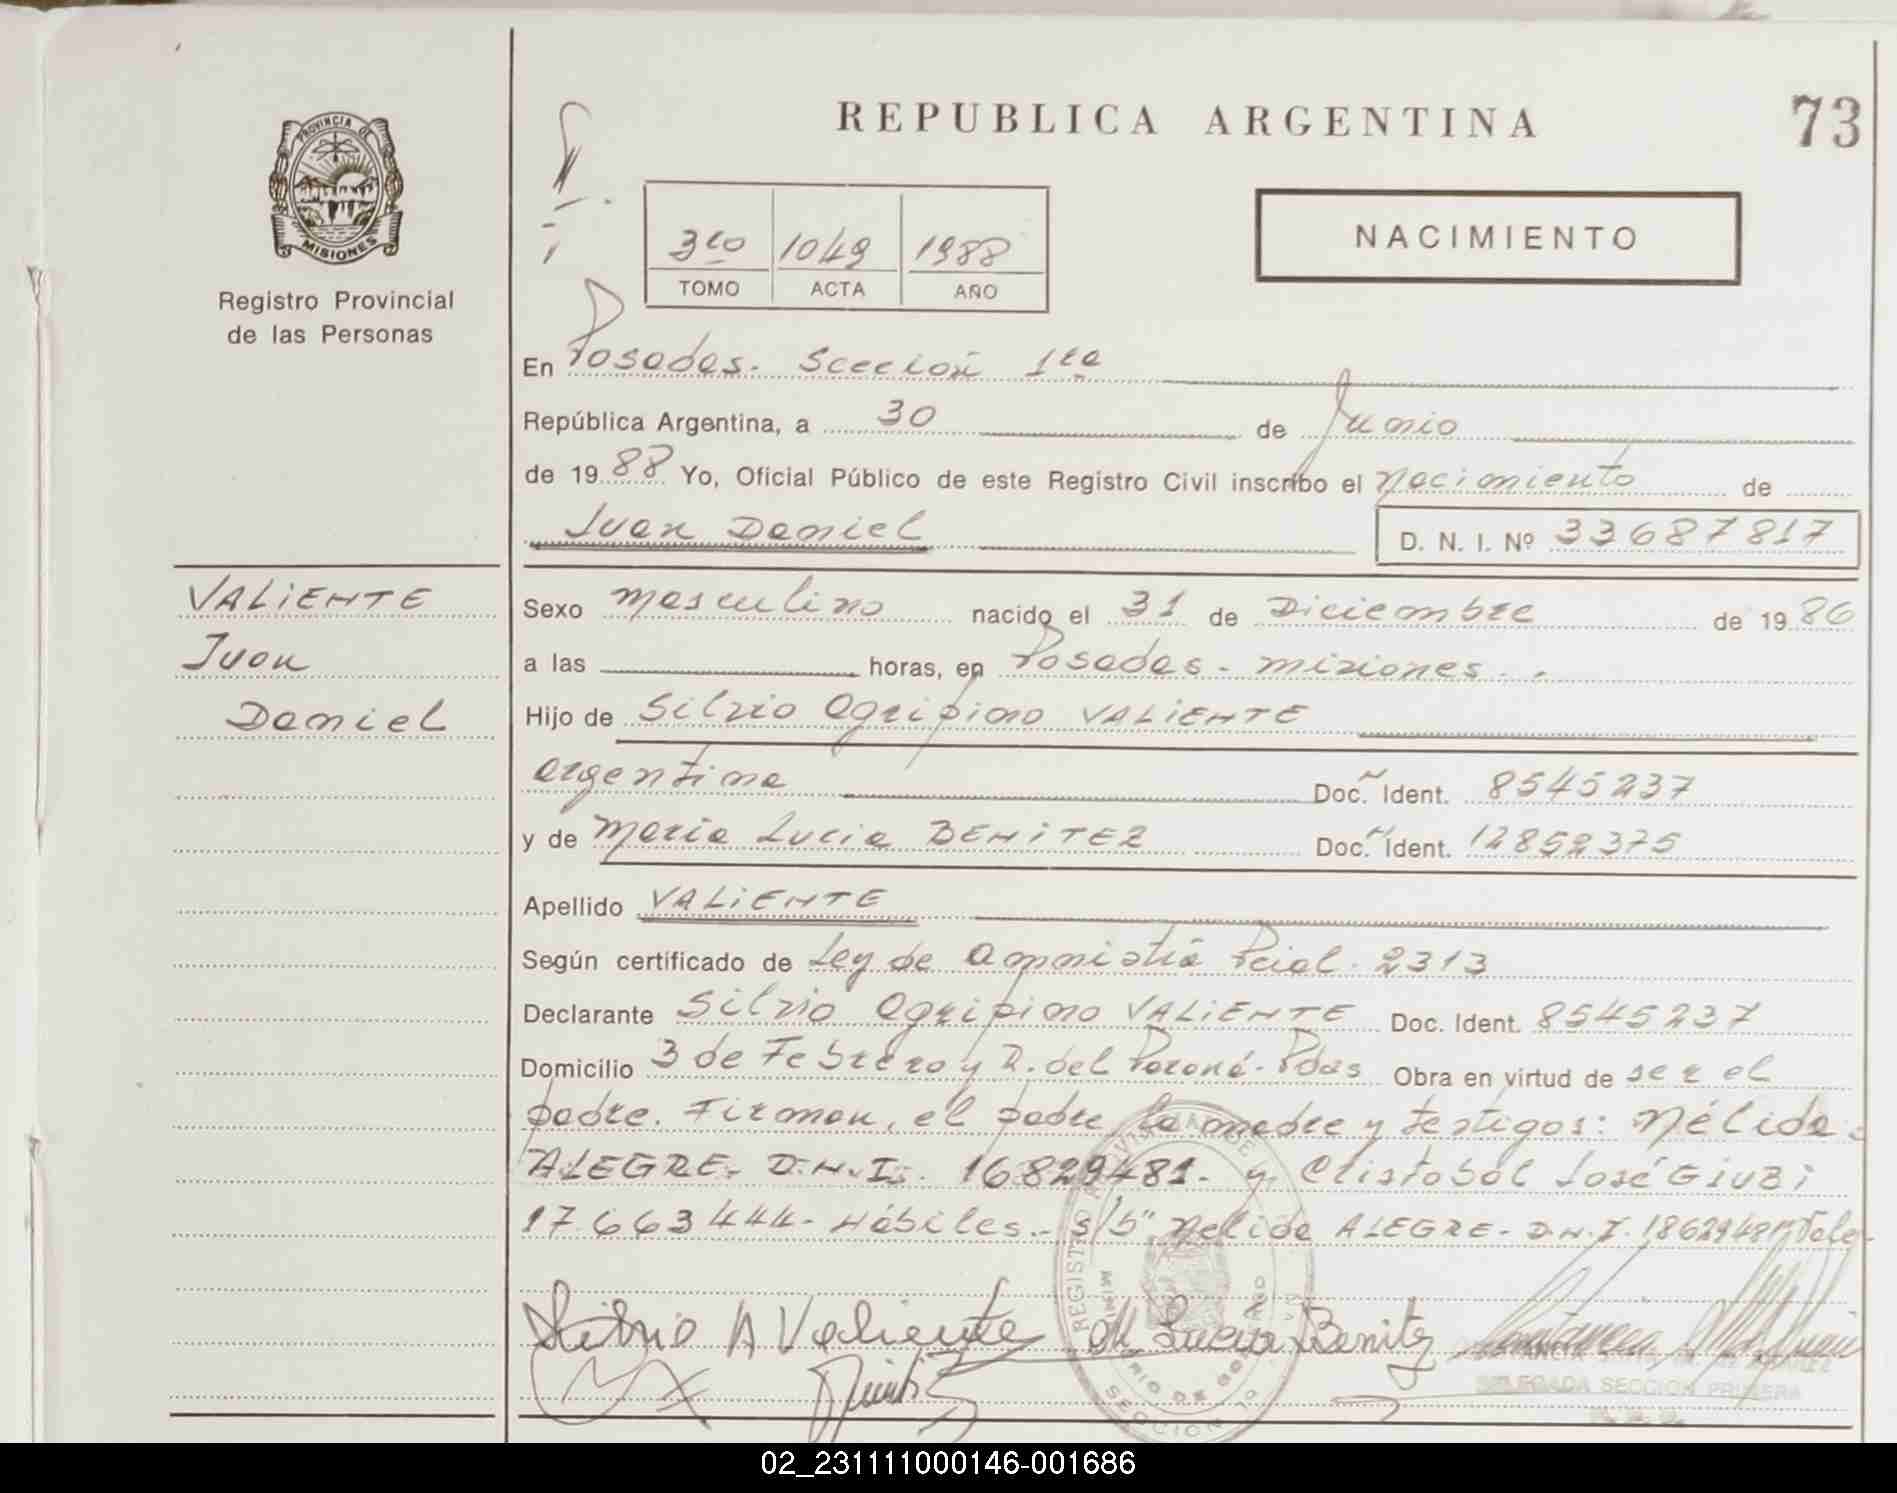 PROVINCIA DE
MISIONES
Registro Provincial
de las Personas
VALIENTE
Juan
Daniel
REPUBLICA ARGENTINA
73
3ro 1049 1988
TOMO ACTA AÑO
NACIMIENTO
En Posadas. Sección 1ra
República Argentina, a 30 de Junio
de 1988 Yo, Oficial Público de este Registro Civil inscribo el nacimiento de
Juan Daniel D. N. I. Nº 33687817
Sexo masculino nacido el 31 de Diciembre de 1986
a las horas, en Posadas - misiones.
Hijo de Silvio Agripino VALIENTE
argentina Doc. Ident. 8545237
y de Maria Lucia BENITEZ Doc. Ident. 12852375
Apellido VALIENTE
Según certificado de Ley de Amnistia Pcial. 2313
Declarante Silvio Agripino VALIENTE Doc. Ident. 8545237
Domicilio 3 de Febrero y R. del Paraná - Pdas Obra en virtud de ser el
padre. Firman, el padre, la madre y testigos: Nélida
ALEGRE. D.N.I. 16829481. y Cristobal José GIUBI
17.663444. Hábiles. - s/b" Nelida ALEGRE - D.N.I. 18629481 Vale
Silvio A Valiente M Lucia Benitez
DELEGADA SECCION PRIMERA
02_231111000146-001686